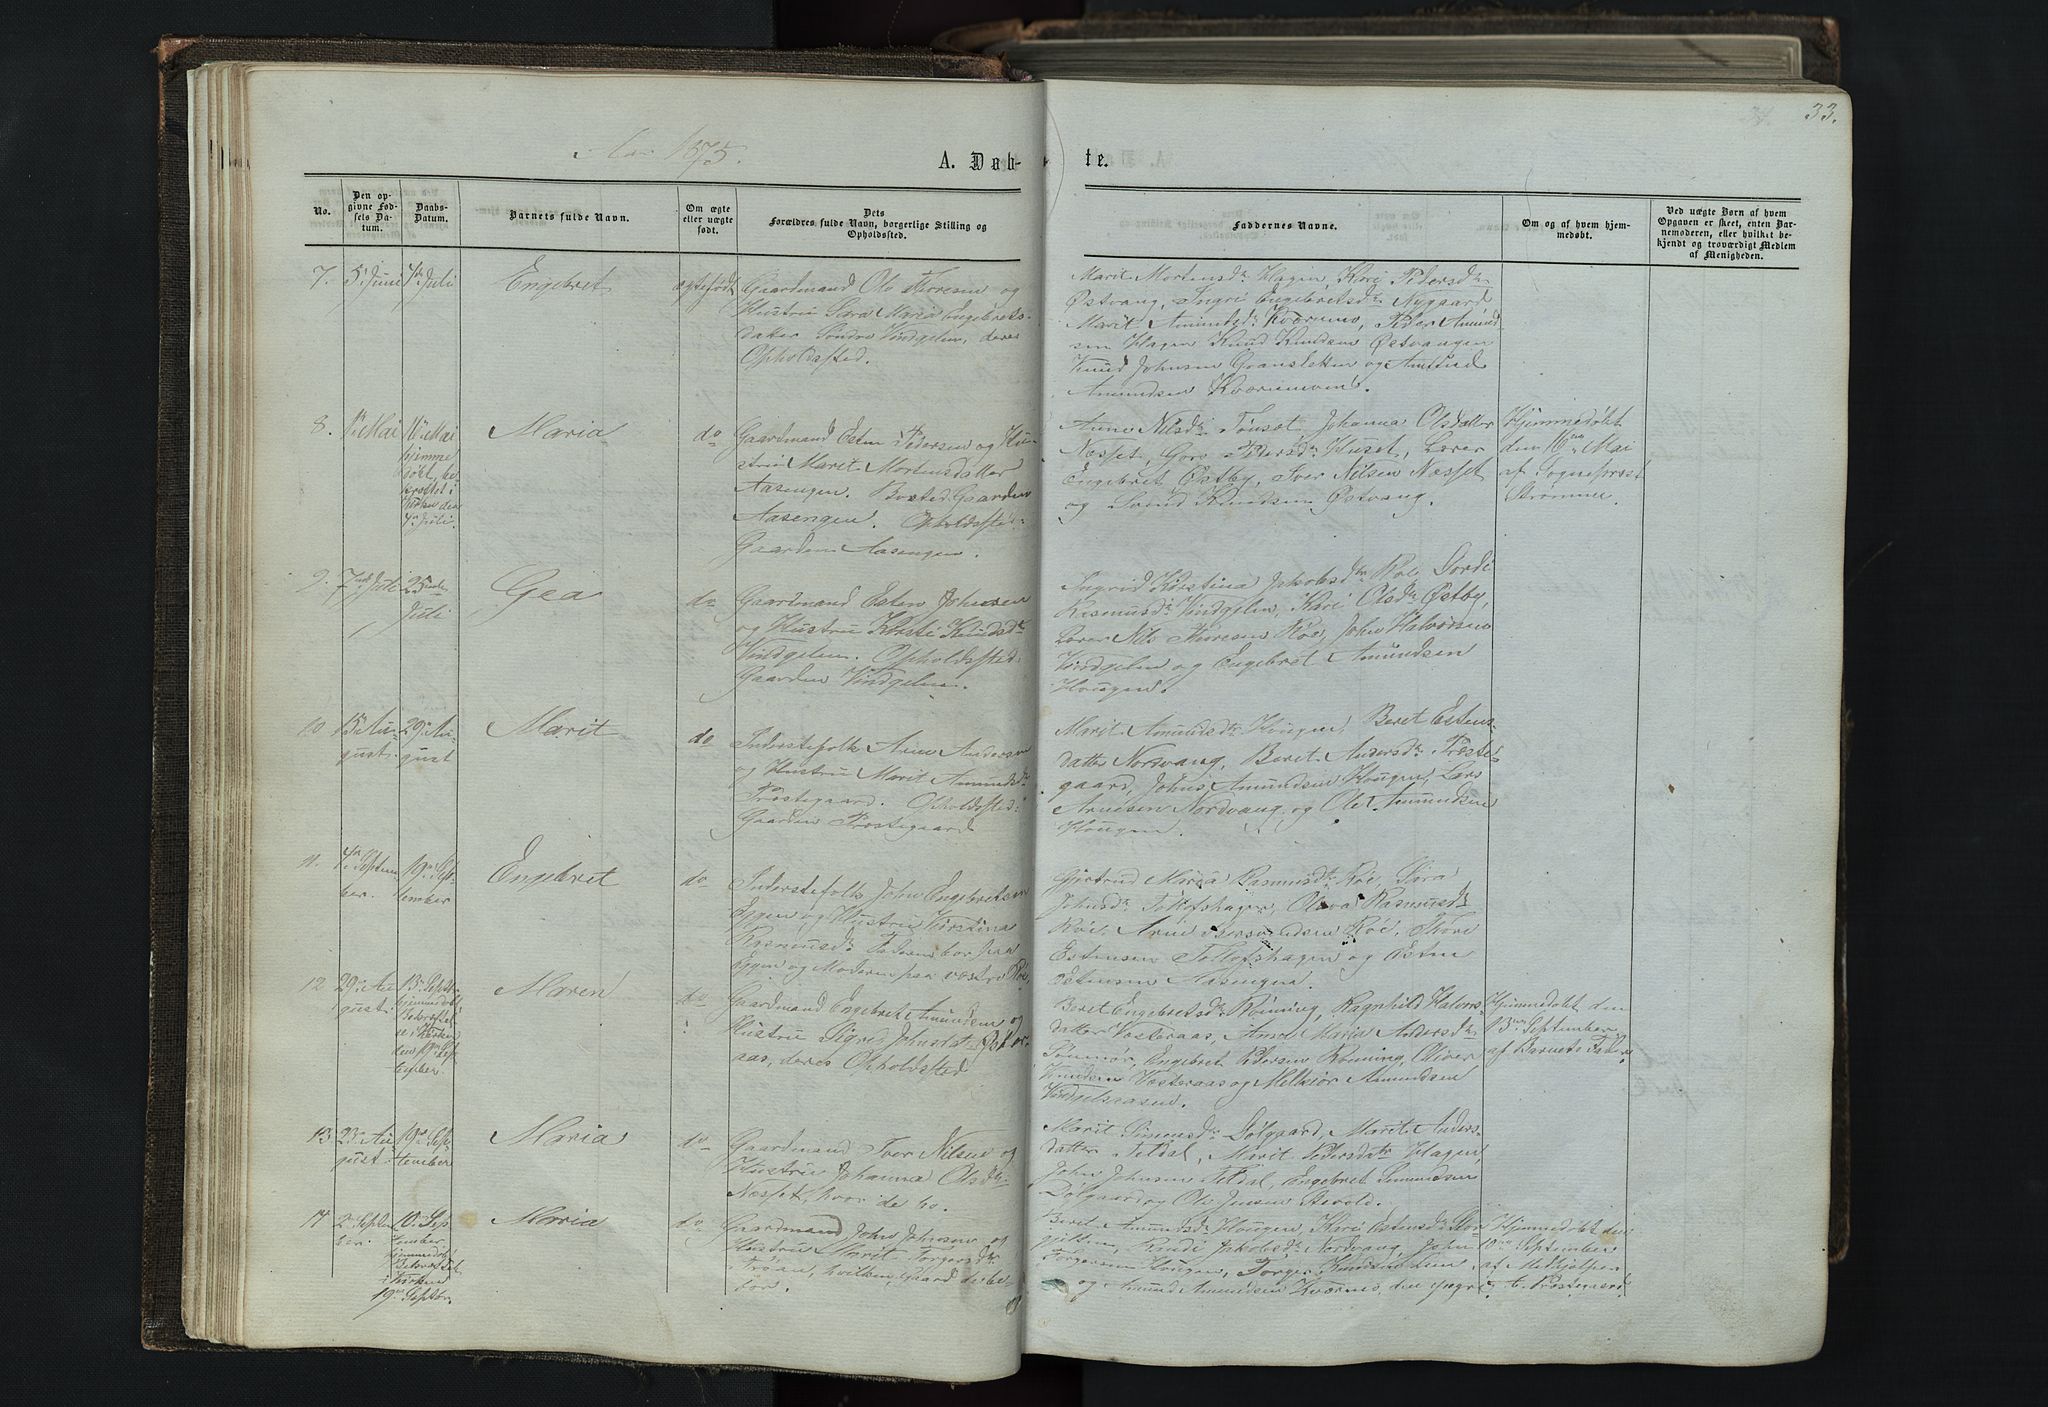 33.
Aar 1875.
A. Døb-
te.
No.
Den op-
givne Fød-
sels Da-
tum.
Daabs-
Datum.
Barnets fulde Navn.
Om ægte
eller uægte
født.
Dets
Forældres fulde Navn, borgerlige Stilling og
Opholdssted.
Faddernes Navne.
Om og af hvem hjem-
medøbt.
Ved uægte Børn af hvem
Opgaven er skeet, enten Bar-
nemoderen, eller hvilket be-
kjendt og troværdigt Medlem
af Menigheden.
7.
5te Juni
4de Juli
Engebret
ægtefødt
Gaardmand Ole Thoresen og
Hustru Sara Maria Engebrets-
datter Søndre Vindgelen, deres
Opholdssted.
Marit Mortensdr Hagen, Kari Pedersdr
Østvang, Ingri Engebretsdr Nygaard
Marit Amundsdr Kværnmo, Peder Amund
sen Hagen Knud Knudsen Østvangen
Knud Johnsen Graasletten og Amund
Amundsen Kværnmoen.
8.
1ste Mai
16de Mai
hjemme
døbt, be
kræftet i
Kirken den
4de Juli.
Maria
do
Gaardmand Esten Pedersen og Hu-
stru Marit Mortensdatter
Aasengen. Bosted Gaarden
Aasengen. Opholdssted:
Gaarden Aasengen.
Anne Nilsdr Tønset, Johanna Olsdatter
Næsset, Goro Pedersdr Huset, Lærer
Engebret Østby, Iver Nilsen Næsset
og Svend Knudsen Østvang.
Hjemmedøbt
den 16de Mai
af Sogneprest
Strømme.
9.
7nde Juli
25nde
Juli
Gea
do
Gaardmand Esten Johnsen
og Hustru Kirsti Knudsdr
Vindgelen. Opholdssted:
Gaarden Vindgelen.
Ingrid Kirstina Jakobsdr Røe, Gordi
Rasmusdr Vindgelen, Kari Olsdr Østby,
Lærer Nils Thoresen Røe, John Halvorsen
Vindgelen og Engebret Amundsen
Hougen.
10
15de Au-
gust.
29de Au-
gust
Marit
do
Inderstefolk Arne Andersen
og Hustru Marit Amundsdr
Præstegaard. Opholdssted:
Gaarden Præstegaard
Marit Amundsdr Hougen, Beret Estens-
datter Nordvang, Beret Andersdr Præste-
gaard, Johns Amundsen Hougen, Lars
Arnesen Nordvang og Ole Amundsen
Hougen.
11.
4de Septem
ber.
19de Sep-
tember
Engebret
do
Inderstefolk John Engebretsen
Eggen og Hustru Kirstina
Rasmusdr Faderen bor paa
Eggen og Moderen paa vestre Røe.
Gjertrud Maria Rasmusdr Røe, Sara
Johnsdr Tollofshagen, Oliva Rasmusdr
Røe, Arne Rasmundsen Røe, Thore
Estensen Tollofshagen og Esten
Estensen Aasengen.
12
29de Au
gust.
13de Septbr.
hjemmedøbt
Bekræftet
i Kirken
den 19de Sep-
tember.
Maren
do
Gaardmand Engebret Amundsen og
Hustru Sigrid Johnsdatter
aas, deres Opholdssted
Beret Engebretsdr Rønning, Ragnhild Halvors-
datter Vesteraas, Anne Maria Andersdr
Sømmor, Engebret Pedersen Rønning, Oliver
Knudsen Vesteraas og Melkior Amundsen
Vindgelsaasen.
Hjemmedøbt den
13de September
af Barnets Fader.
13
23de Au
gust.
19de Sep-
tember
Maria
do
Gaardmand Iver Nilsen og
Hustru Johanna Olsdr
Næsset, hvor de bo.
Marit Simensdr Dølgaard, Marit Anders-
datter Teldal, Marit Pedersdatr Hagen,
John Johnsen Teldal, Engebret Simensen
Dølgaard og Ole Jensen
14
2de Septem
ber.
10de Sep
tember
hjemmedøbt
Bekræftet
i Kirken
19de Septbr.
Maria
do
Gaardmand John Johnsen og
Hustru Marit Torgersdr
Troen, hvilken Gaard de be-
bor.
Beret Amundsdr Hougen, Kari Estensdr
Randi Jakobsdr Nordvang, John
Torgersen Hougen, Torger Knudsen
og Amund Amundsen Kværnes, den yngre.
Hjemmedøbt den
10de September
af Medhjælper
Præstegaard